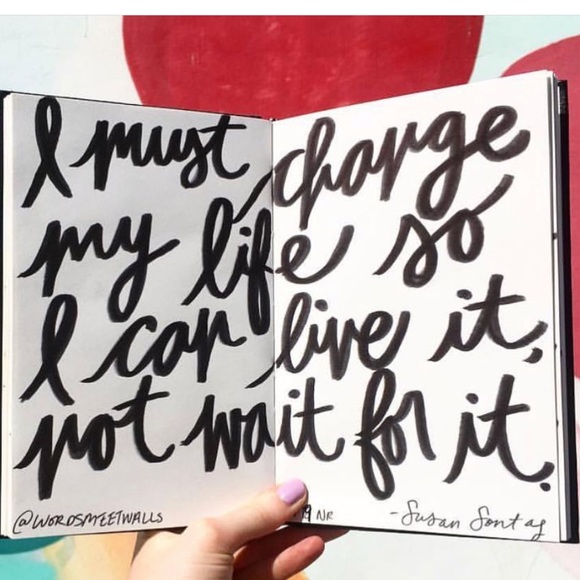 I must change
my life so
I can live it,
not wait for it.
@WORDSMEETWALLS NR - Susan Sontag